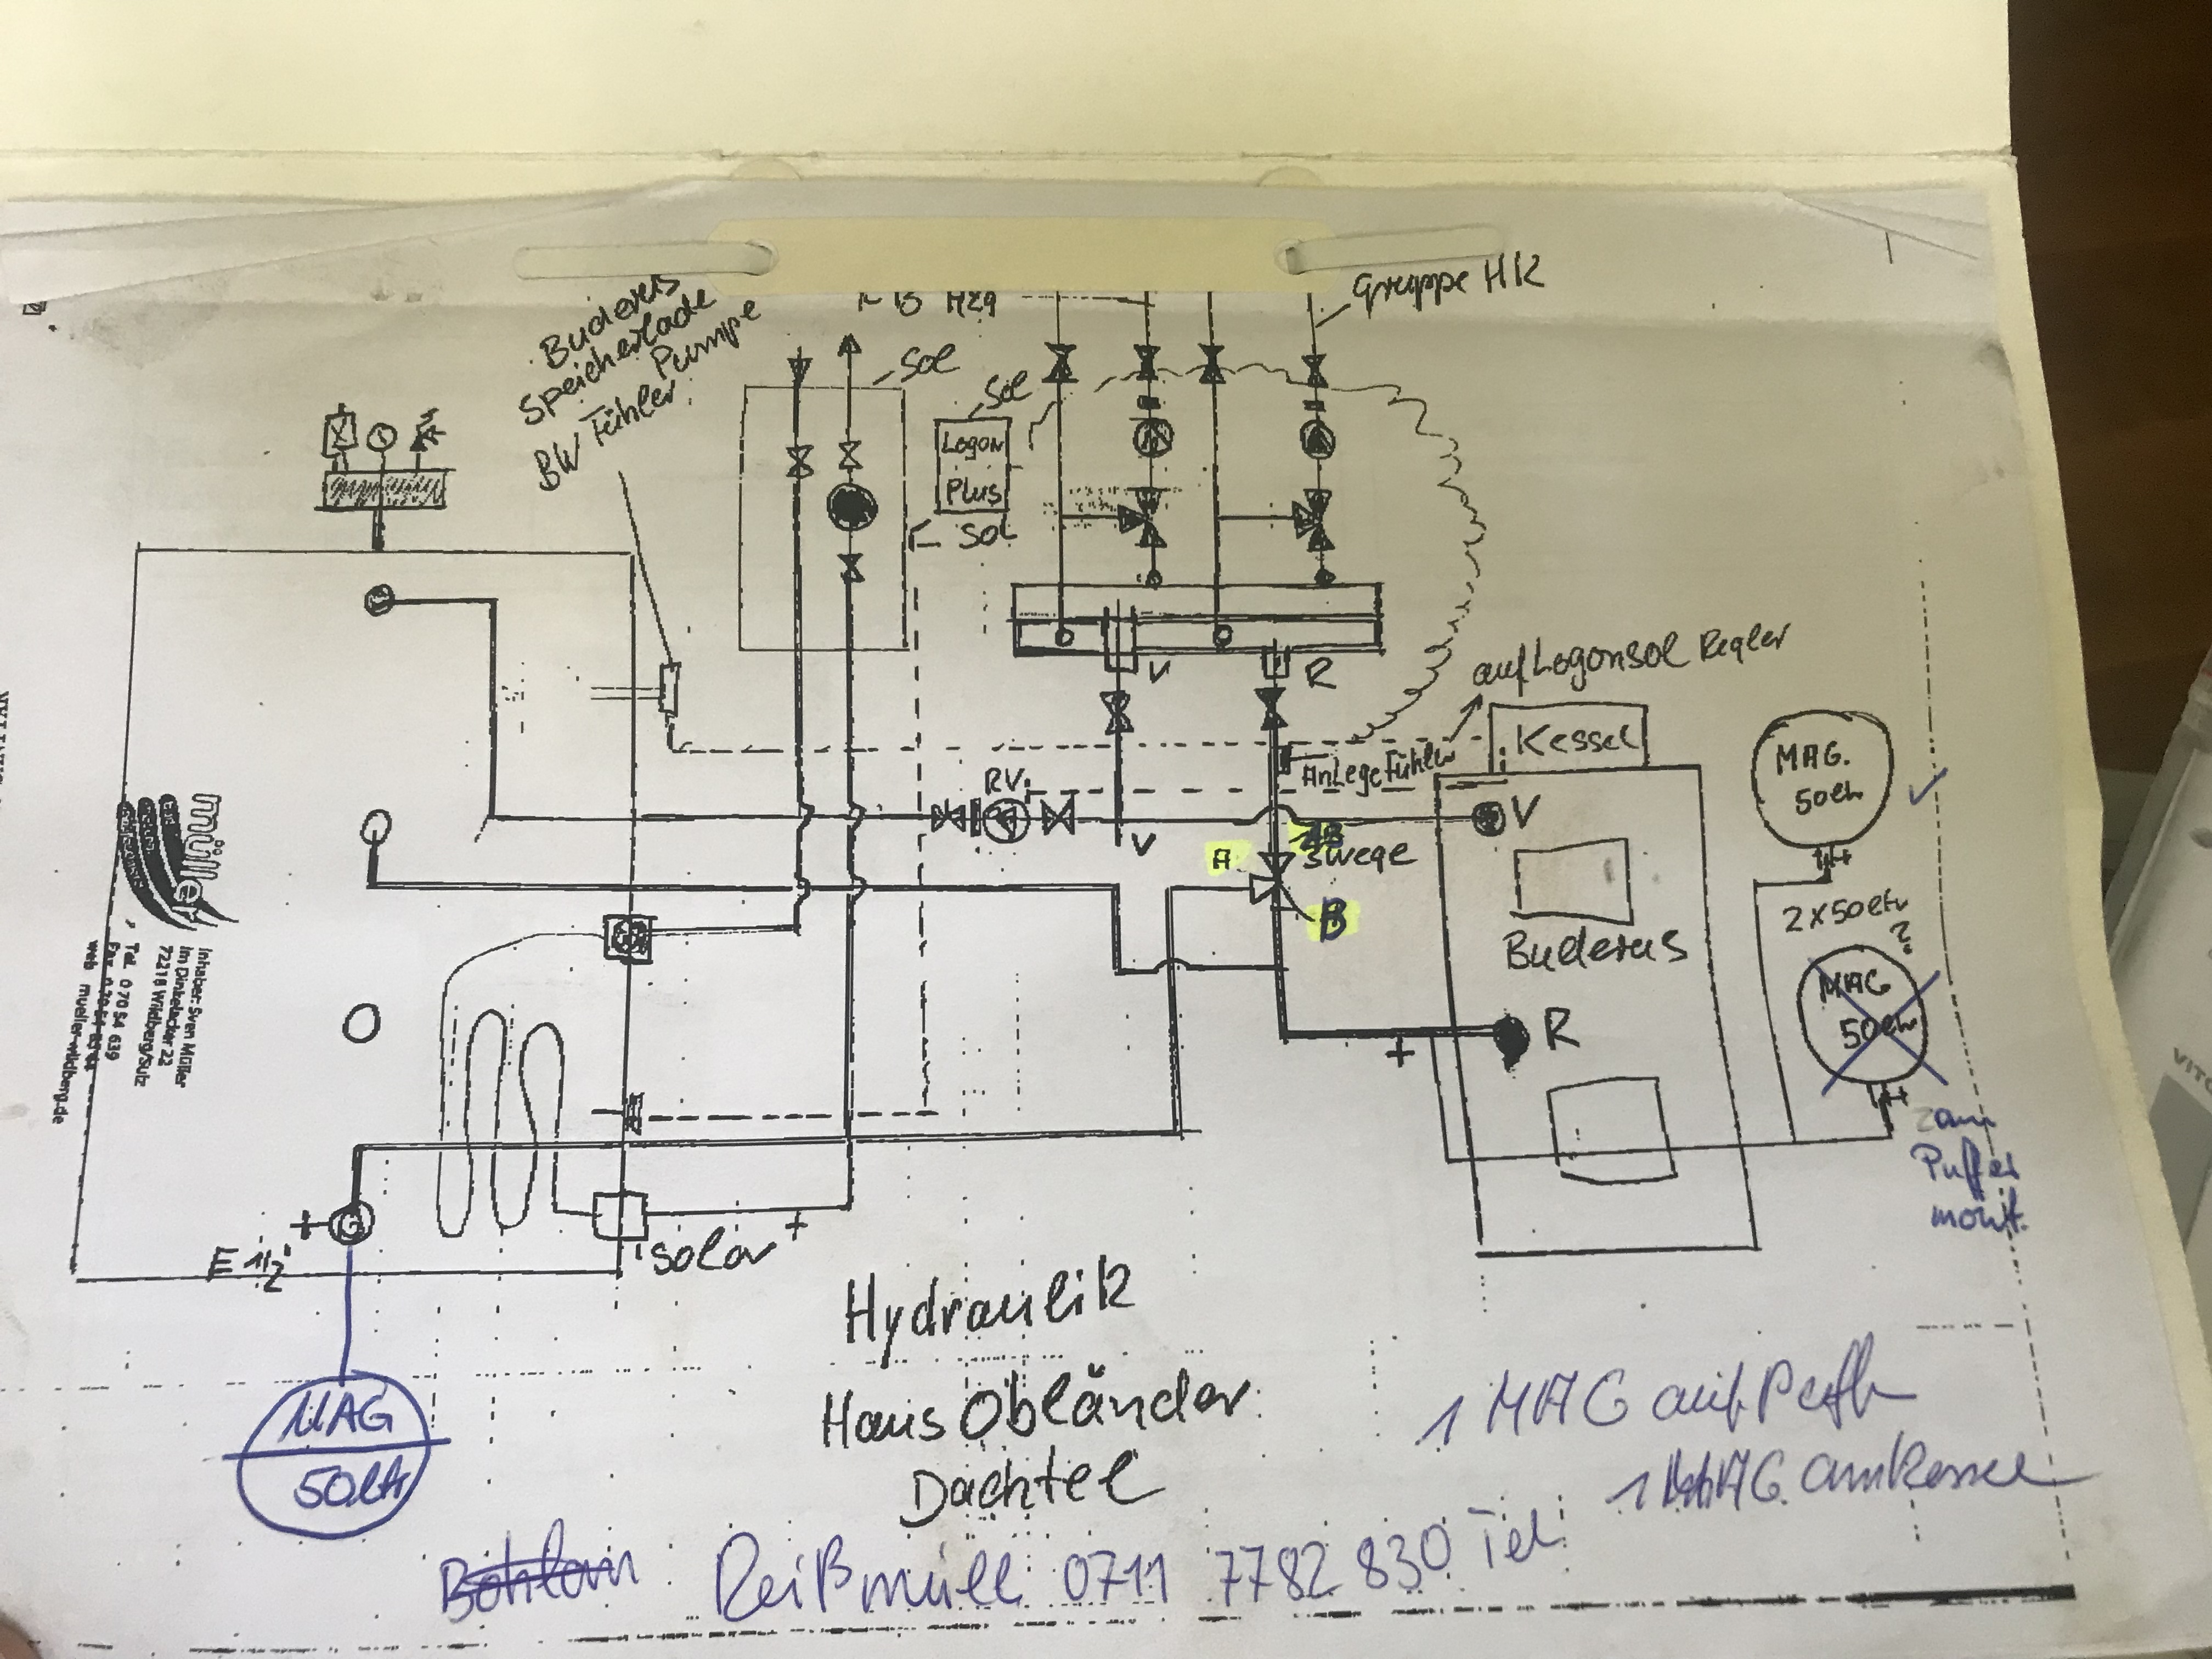 Gruppe HK
Buderus
Speicherlade
Pumpe
BW Fühler
Sol
Sol
Logon
Plus
Sol
V
R
auf Logonsol Regler
Kessel
Anlegefühler
RV
V
V
A
AB
3wege
B
MAG.
50ltr
2x50ltr
?
MAG
50ltr
Buderus
R
+
zam
Puffer
mont.
müller
Inhaber: Sven Müller
Im Dinkelacker 23
72218 Wildberg/Sulz
Tel. 0 70 54 639
web mueller-wildberg.de
E 1 1/2"
Solar
+
Hydraulik
Haus Obländer
Dachtel
MAG
50ltr
1 MAG auf Puffer
1 MAG am Kessel
Reißmüll 0711 7782 830 Tel
VITO